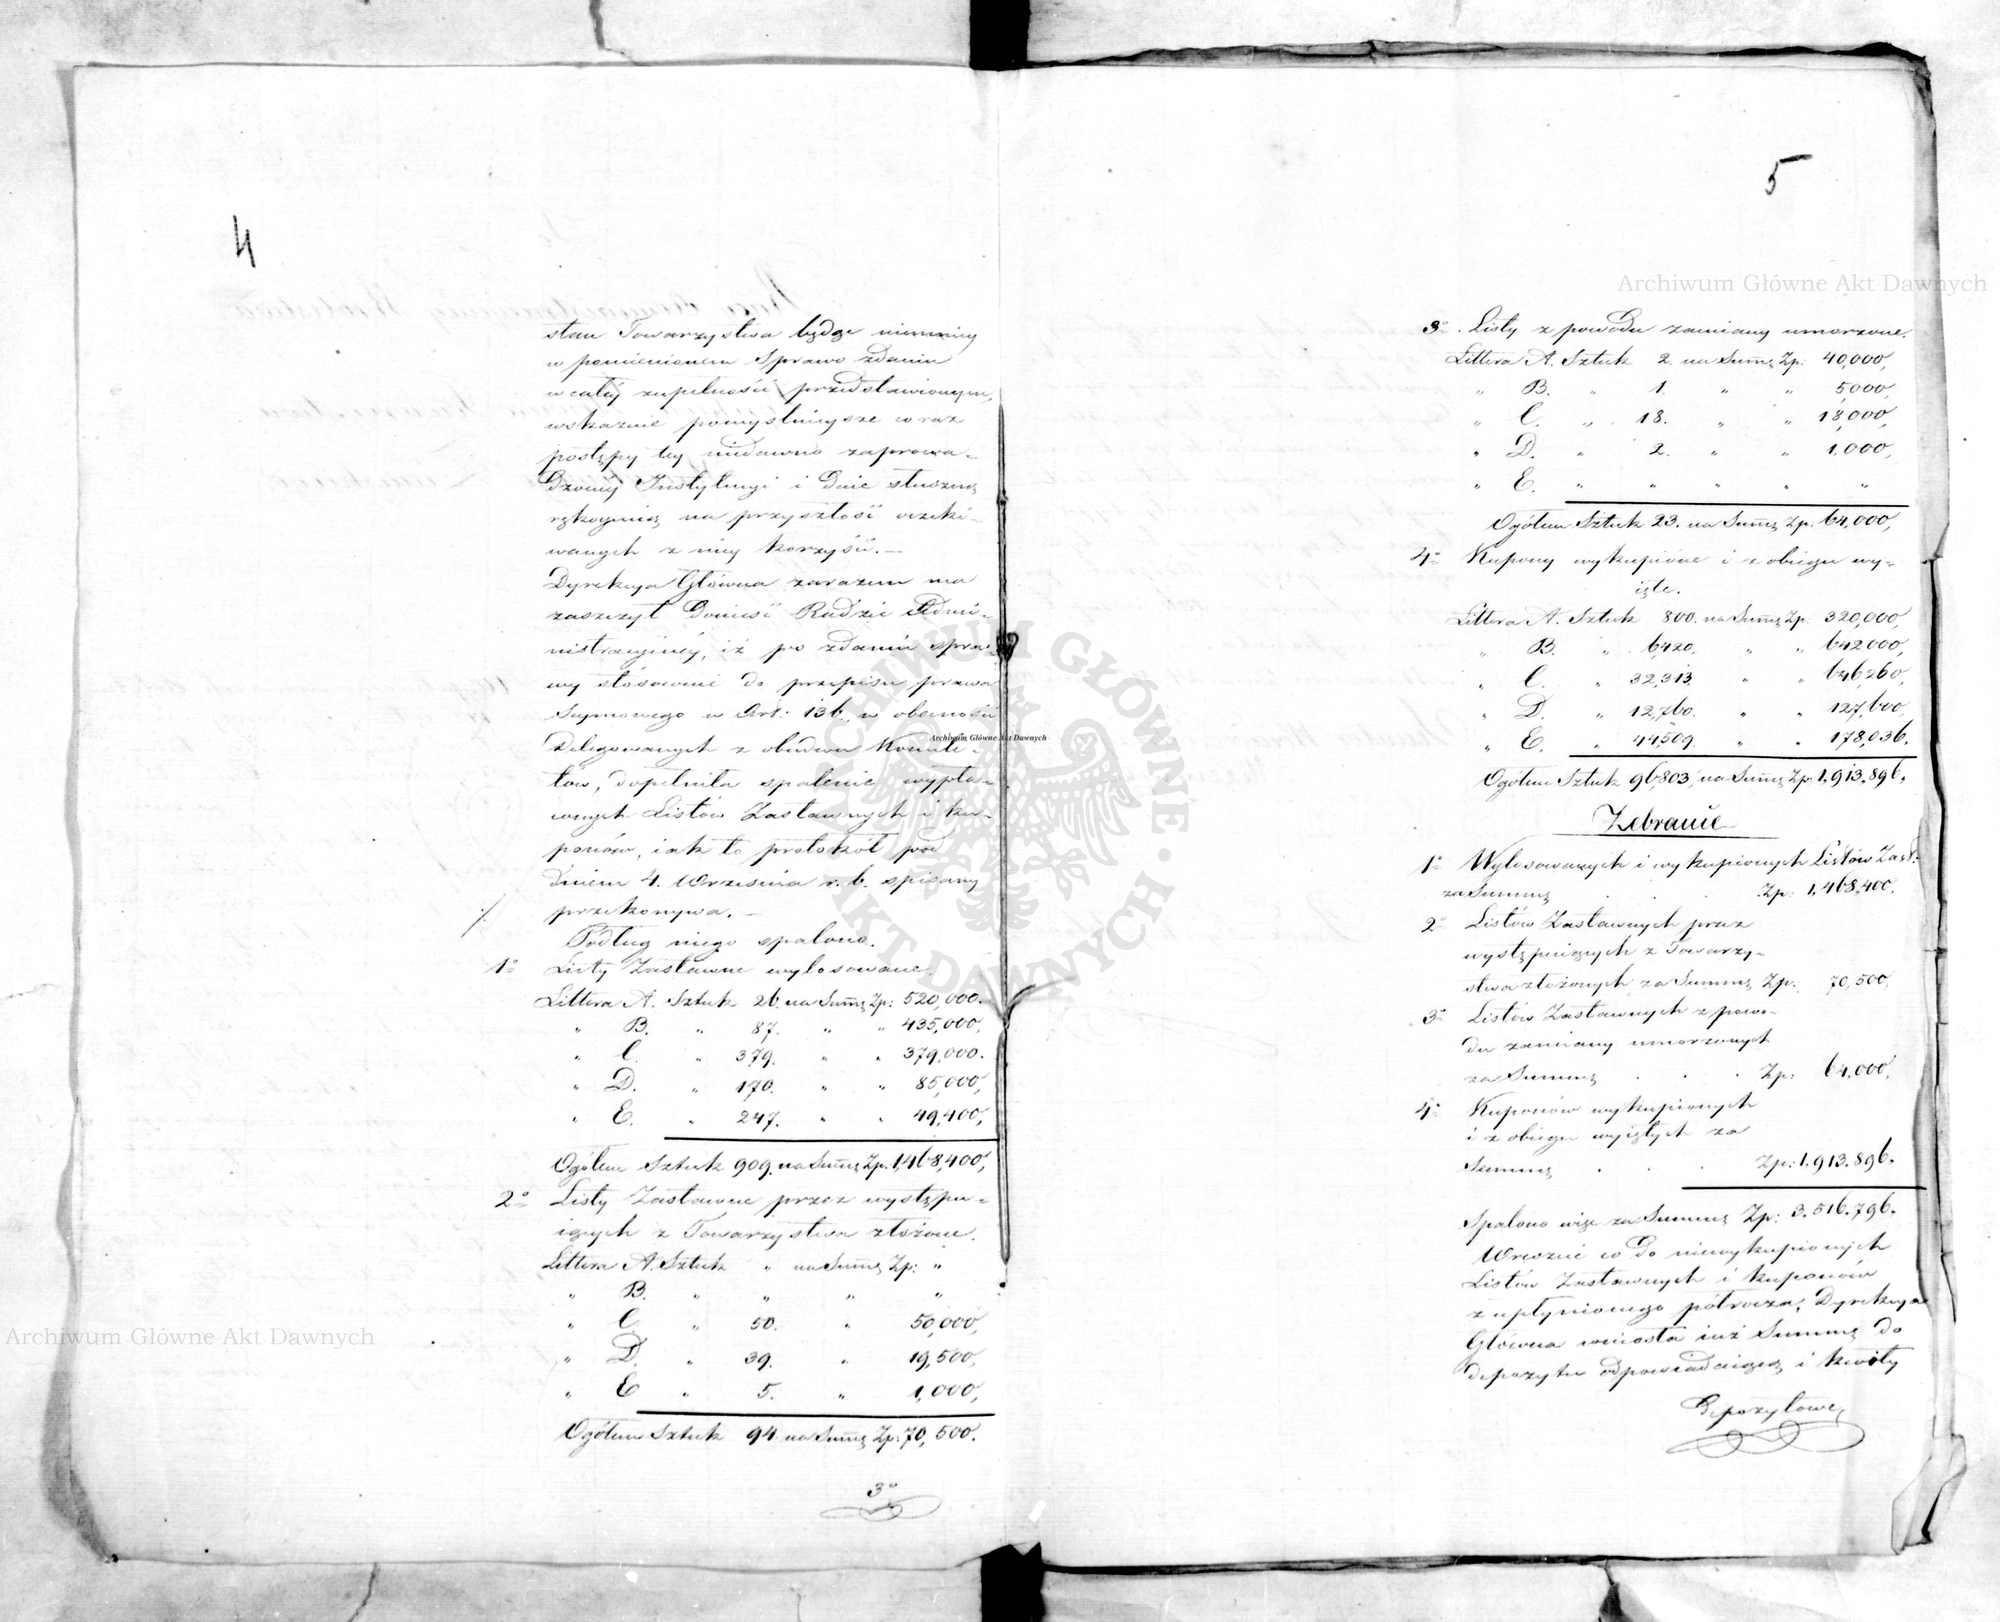 4
stan Towarzystwa będąc niemniey
w pomienionem Sprawozdaniu
w całéy zupełności przedstawionym,
wskazuie pomyślnieysze coraz
postępy téy niedawno zaprowa-
dzonéy Instytucyi i daie słuszną
rękoymię na przyszłość oczeki-
wanych z niey korzyści. —
Dyrekcya Główna zarazem ma
zaszczyt donieść Radzie Admi-
nistracyinéy, iż po zdaniu spra-
wy stósownie do przepisu prawa
Seymowego w Art: 136. w obecności
Delegowanych z obudwu Komite-
tów, dopełniła spalenie wypła-
conych Listów Zastawnych i ku-
ponów, iak to protokół pod
dniem 4. Września r. b. spisany
przekonywa. —
Podług niego spalono.
1o Listy Zastawne wylosowane.
Littera A. Sztuk 26. na Summę Zp: 520,000.
" B. " 87. " " 435,000,
" C. " 379. " " 379,000.
" D. " 170. " " 85,000,
" E. " 247. " " 49,400,
Ogółem Sztuk 909. na Summę Zp. 1,468,400,
2o Listy Zastawne przez występu-
iących z Towarzystwa złożone.
Littera A. Sztuk " na Summę Zp: "
" B. " " " "
" C. " 50. " 50,000,
" D. " 39. " 19,500,
" E " 5. " 1,000,
Ogółem Sztuk 94 na Summę Zp: 70,500.
3o
5
3o. Listy z powodu zamiany umorzone.
Littera A. Sztuk 2. na Summę Zp: 40,000,
" B. " 1. " " 5000,
" C. " 18. " " 18,000,
" D. " 2. " " 1,000,
" E. " " " " "
Ogółem Sztuk 23. na Summę Zp: 64,000,
4o Kupony wykupione i z obiegu wy-
ięte.
Littera A. Sztuk 800. na Summę Zp: 320,000,
" B. " 6,420. " " 642000,
" C. " 32,313. " " 646,260,
" D. " 12,760. " " 127,600,
" E. " 44,509. " " 178,036.
Ogółem Sztuk 96,803, na Summę Zp. 1,913.896.
Zebranie
1o Wylosowanych i wykupionych Listów Zast:
za Summę . . . Zp: 1,468,400.
2o Listów Zastawnych przez
występuiących z Towarzy-
stwa złożonych za Summę Zp. 70,500,
3o Listów Zastawnych z powo-
du zamiany umorzonych
za Summę . . . Zp: 64,000,
4o Kuponów wykupionych
i z obiegu wyiętych za
Summę . . . Zp: 1.913.896.
Spalono więc za Summę Zp: 3.516.796.
Wreszcie co do niewykupionych
Listów Zastawnych i kuponów
z upłynionego półrocza, Dyrekcya
Główna wniosła iuż Summę do
depozytu odpowiadaiącą i kwity
Depozytowe,
Archiwum Główne Akt Dawnych
Archiwum Główne Akt Dawnych
Archiwum Główne Akt Dawnych
ARCHIWUM GŁÓWNE AKT DAWNYCH